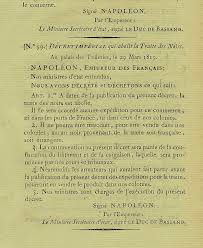 le concerne.
Signé NAPOLÉON.
Par l'Empereur :
Le Ministre Secrétaire d'état, signé LE DUC DE BASSANO.
(N.° 59.) DÉCRET IMPÉRIAL qui abolit la Traite des Noirs.
Au palais des Tuileries, le 29 Mars 1815.
NAPOLÉON, EMPEREUR DES FRANÇAIS;
Nos ministres d'état entendus,
NOUS AVONS DÉCRÉTÉ et DÉCRÉTONS ce qui suit :
ART. 1.er A dater de la publication du présent décret, la
traite des noirs est abolie.
Il ne sera accordé aucune expédition pour ce commerce,
ni dans les ports de France, ni dans ceux de nos colonies.
2. Il ne pourra être introduit, pour être vendu dans nos
colonies, aucun noir provenant de la traite soit française,
soit étrangère.
3. La contravention au présent décret sera punie de la
confiscation du bâtiment et de la cargaison, laquelle sera
prononcée par nos cours et tribunaux.
4. Néanmoins, les armateurs qui auraient fait partir avant
la publication du présent décret des expéditions pour la traite,
pourront en vendre le produit dans nos colonies.
5. Nos ministres sont chargés de l'exécution du présent
décret.
Signé NAPOLÉON.
Par l'Empereur :
Le Ministre Secrétaire d'état, signé LE DUC DE BASSANO.